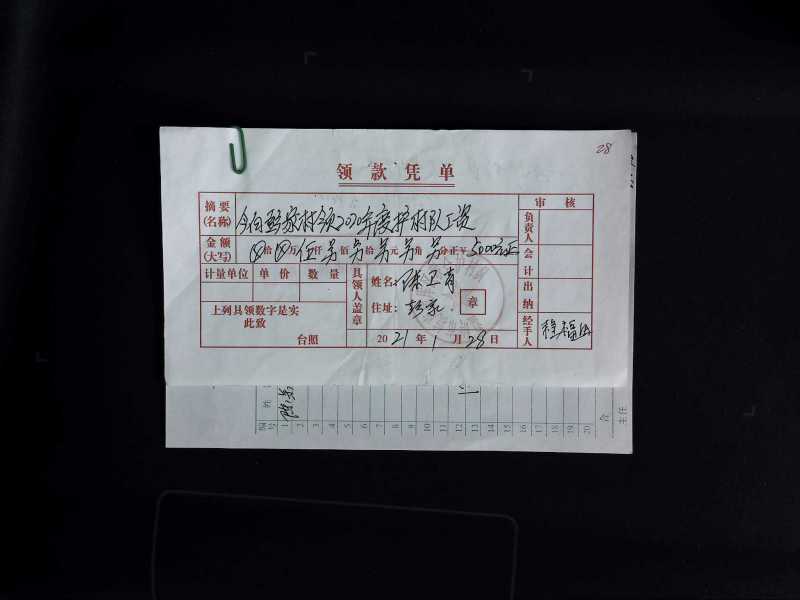 28
领款凭单
摘要(名称) 今向 家村领2020年度护村队工资
金额(大写) ⊗拾⊗万伍仟另佰另拾另元另角另分正¥5000元正
计量单位 单价 数量
上列具领数字是实
此致
台照
具领人盖章
姓名: 陈卫
住址: 彭家
章
2021年1月28日
审核
负责人
会计
出纳
经手人 程福
编号 姓
1 2 3 4 5 6 7 8 9 10 11 12 13 14 15 16 17 18 19 20
合
主任